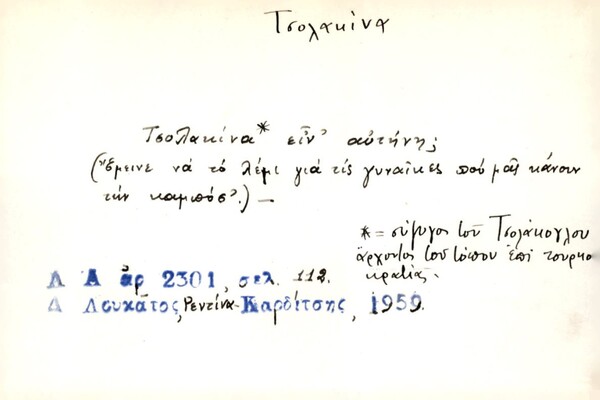 Τσολακίνα
Τσολακίνα* εἶν' αὐτήνη;
(Ἔμεινε νά τό λέμι γιά τίς γυναῖκες πού μᾶς κάνουν
τήν καμπόσ'.) —
* = σύζυγος τοῦ Τσολάκογλου
ἄρχοντος τοῦ τόπου ἐπί τουρκο
κρατίας.
Λ Α ἀρ 2301, σελ. 112.
Δ Λουκᾶτος, Ρεντίνα Καρδίτσης, 1959.